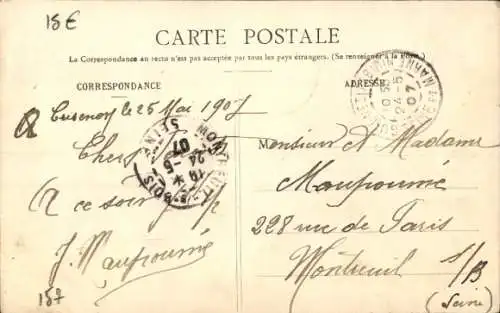 18€
CARTE POSTALE
La Correspondance au recto n'est pas acceptée par tous les pays étrangers. (Se renseigner à la Poste.)
CORRESPONDANCE
ADRESSE
25 Mai 1907
Chers
A ce soir
J. Maufourmé
157
MONTREUIL S/S BOIS
SEINE
24 -5
07
MARNE
24 -5
07
Monsieur & Madame
Maufourmé
228 rue de Paris
Montreuil S/B
(Seine)